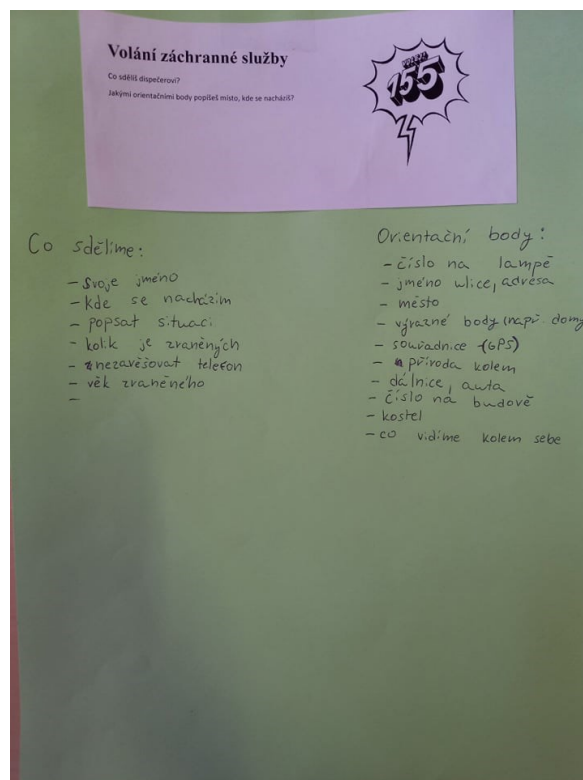 Volání záchranné služby
Co sdělíš dispečerovi?
Jakými orientačními body popíšeš místo, kde se nacházíš?
155
Co sdělíme:
- svoje jméno
- kde se nacházím
- popsat situaci
- kolik je zraněných
- nezavěšovat telefon
- věk zraněného
-
Orientační body:
- číslo na lampě
- jméno ulice, adresa
- město
- výrazné body (např. domy
- souřadnice (GPS)
- příroda kolem
- dálnice, auta
- číslo na budově
- kostel
- co vidíme kolem sebe